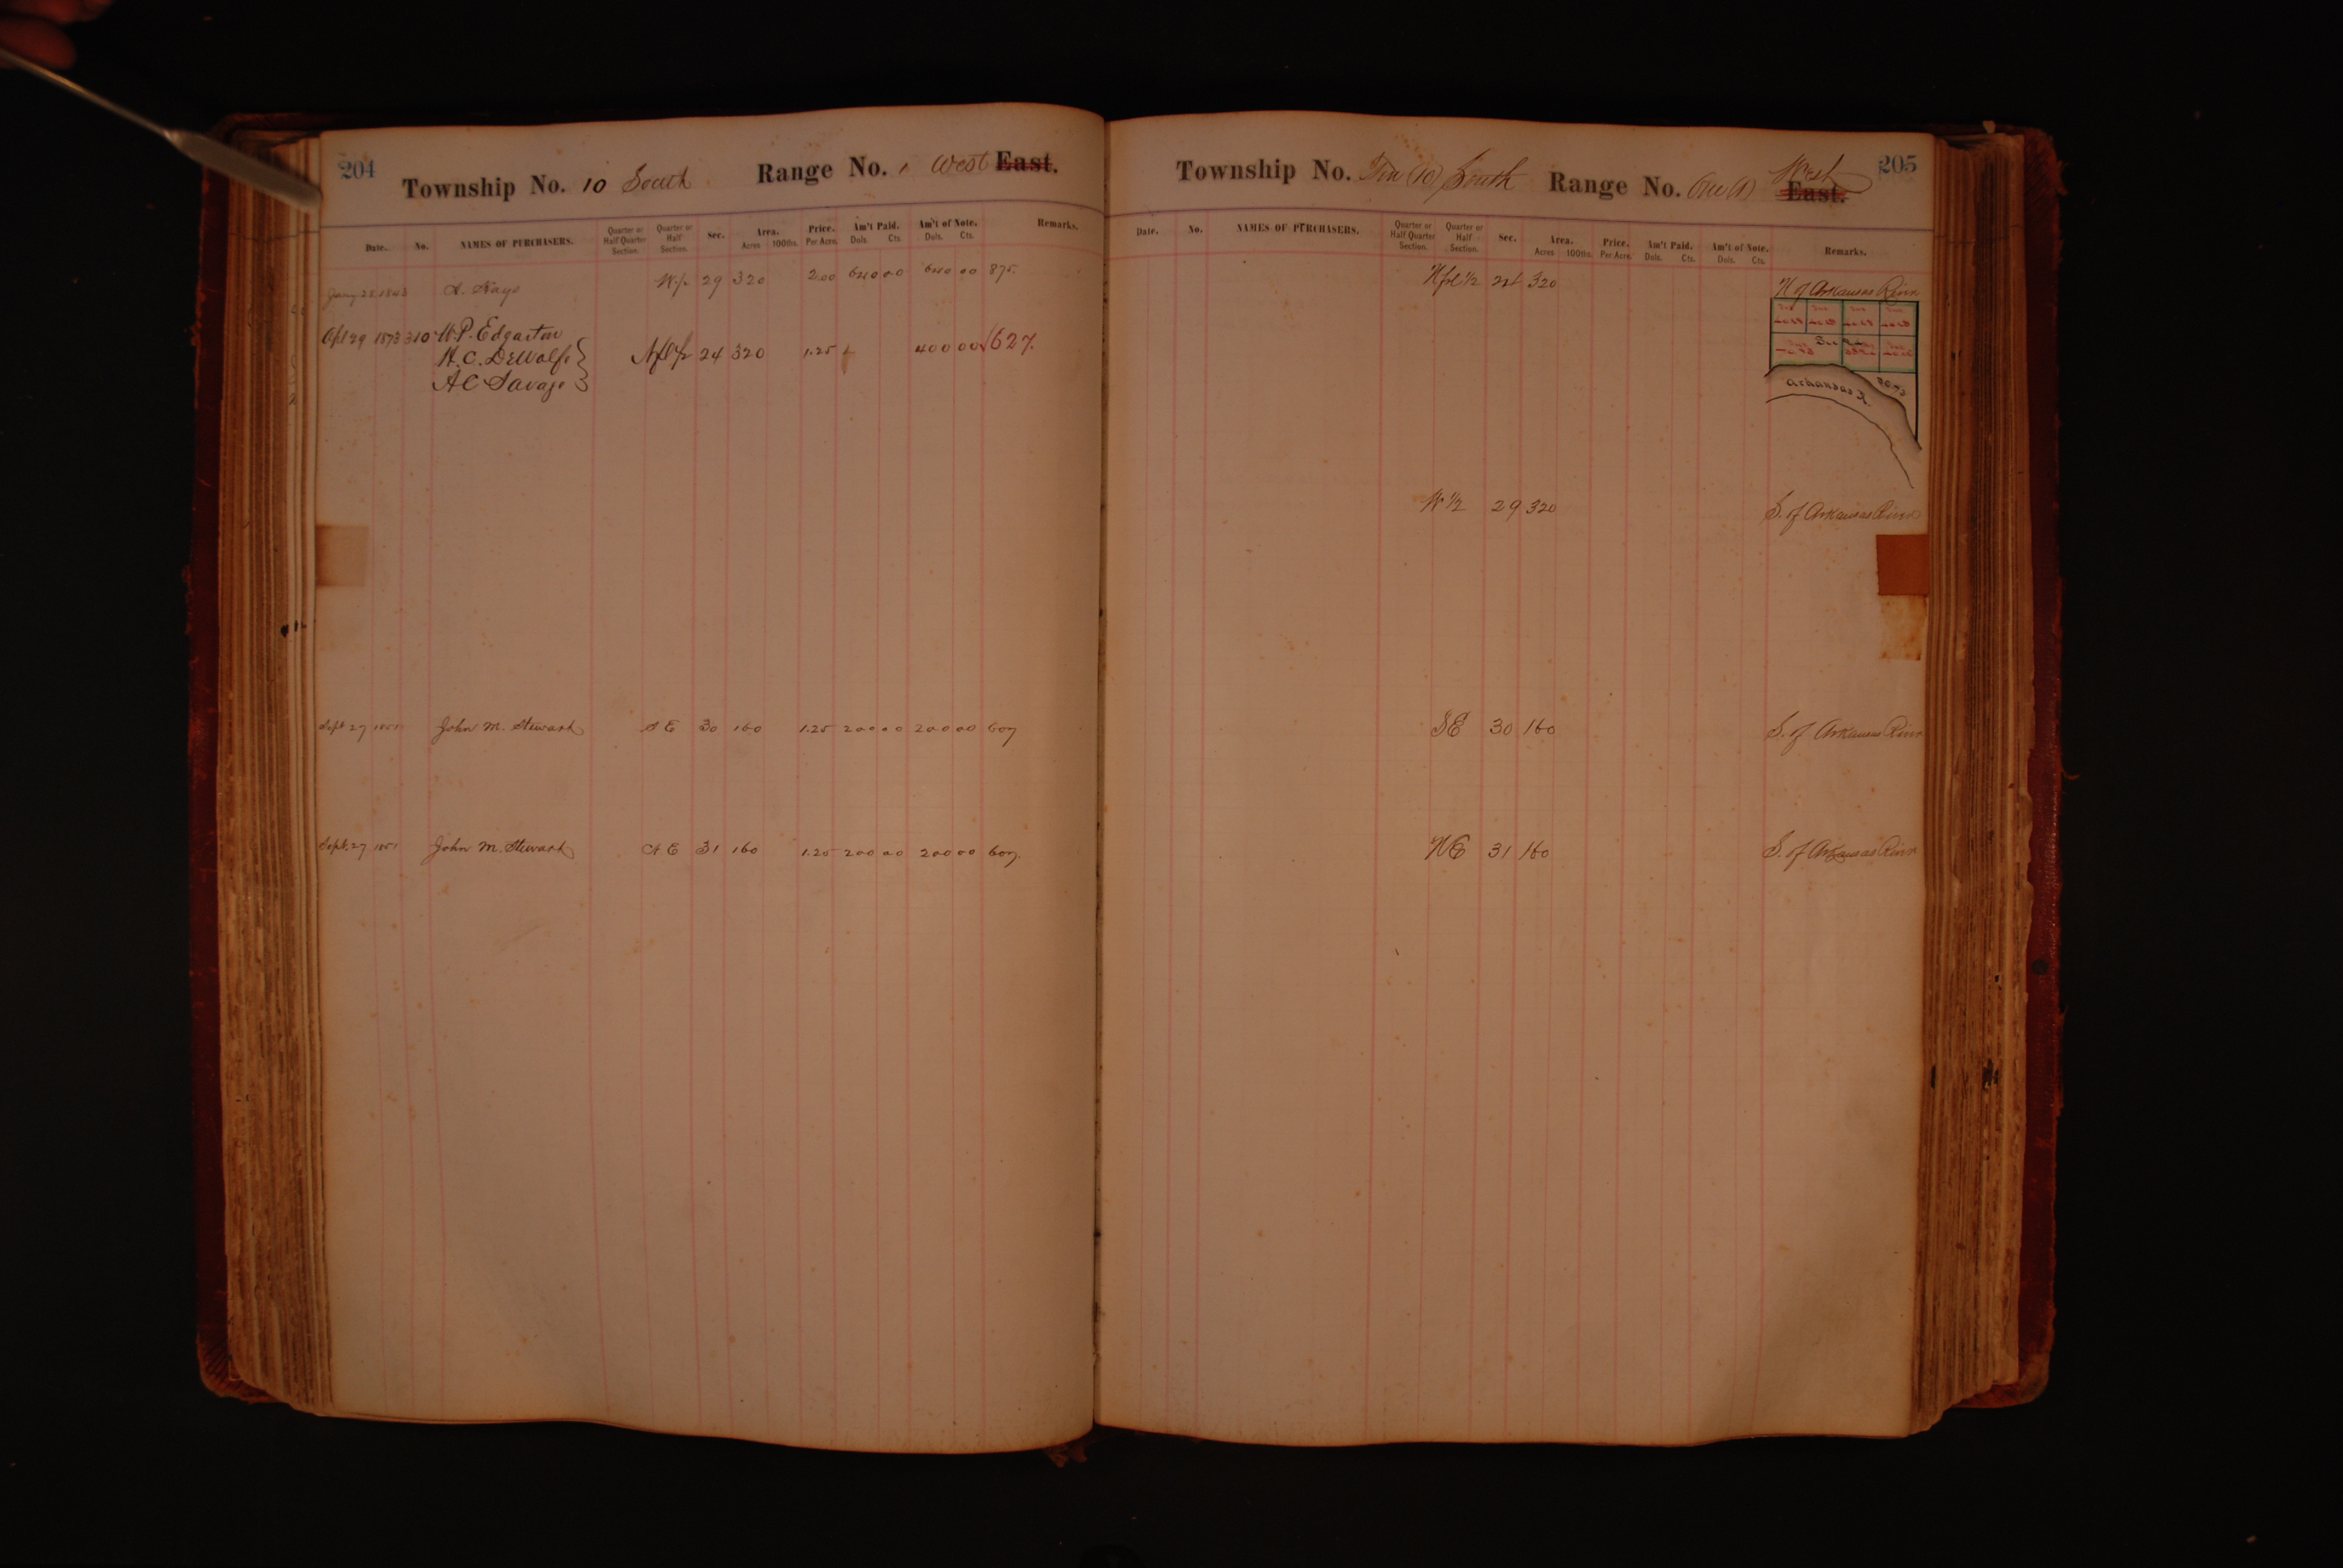 204
Township No. 10 South Range No. 1 West East.
Date. No. NAMES OF PURCHASERS. Quarter or Half Quarter Section. Quarter or Half Section. Sec. Area. Acres 100ths. Price. Per Acre. Am't Paid. Dols. Cts. Am't of Note. Dols. Cts. Remarks.
Jany 28 1843 W 1/2 29 320 2.00 640 00 640 00 875.
Apl 29 1873 310 W. P. Edgarton
H. C. DeWolf N fl 1/2 24 320 1.25 400 00 √627.
A C Savage
Sept 27 1851 John M. Stewart S E 30 160 1.25 200 00 200 00 607
Sept. 27 1851 John M. Stewart N E 31 160 1.25 200 00 200 00 607.
205
Township No. Ten (10) South Range No. One (1) West East.
Date. No. NAMES OF PURCHASERS. Quarter or Half Quarter Section. Quarter or Half Section. Sec. Area. Acres 100ths. Price. Per Acre. Am't Paid. Dols. Cts. Am't of Note. Dols. Cts. Remarks.
N frl 1/2 24 320 N of Arkansas River
Arkansas R.
W 1/2 29 320 S. of Arkansas River
SE 30 160 S. of Arkansas River
NE 31 160 S. of Arkansas River